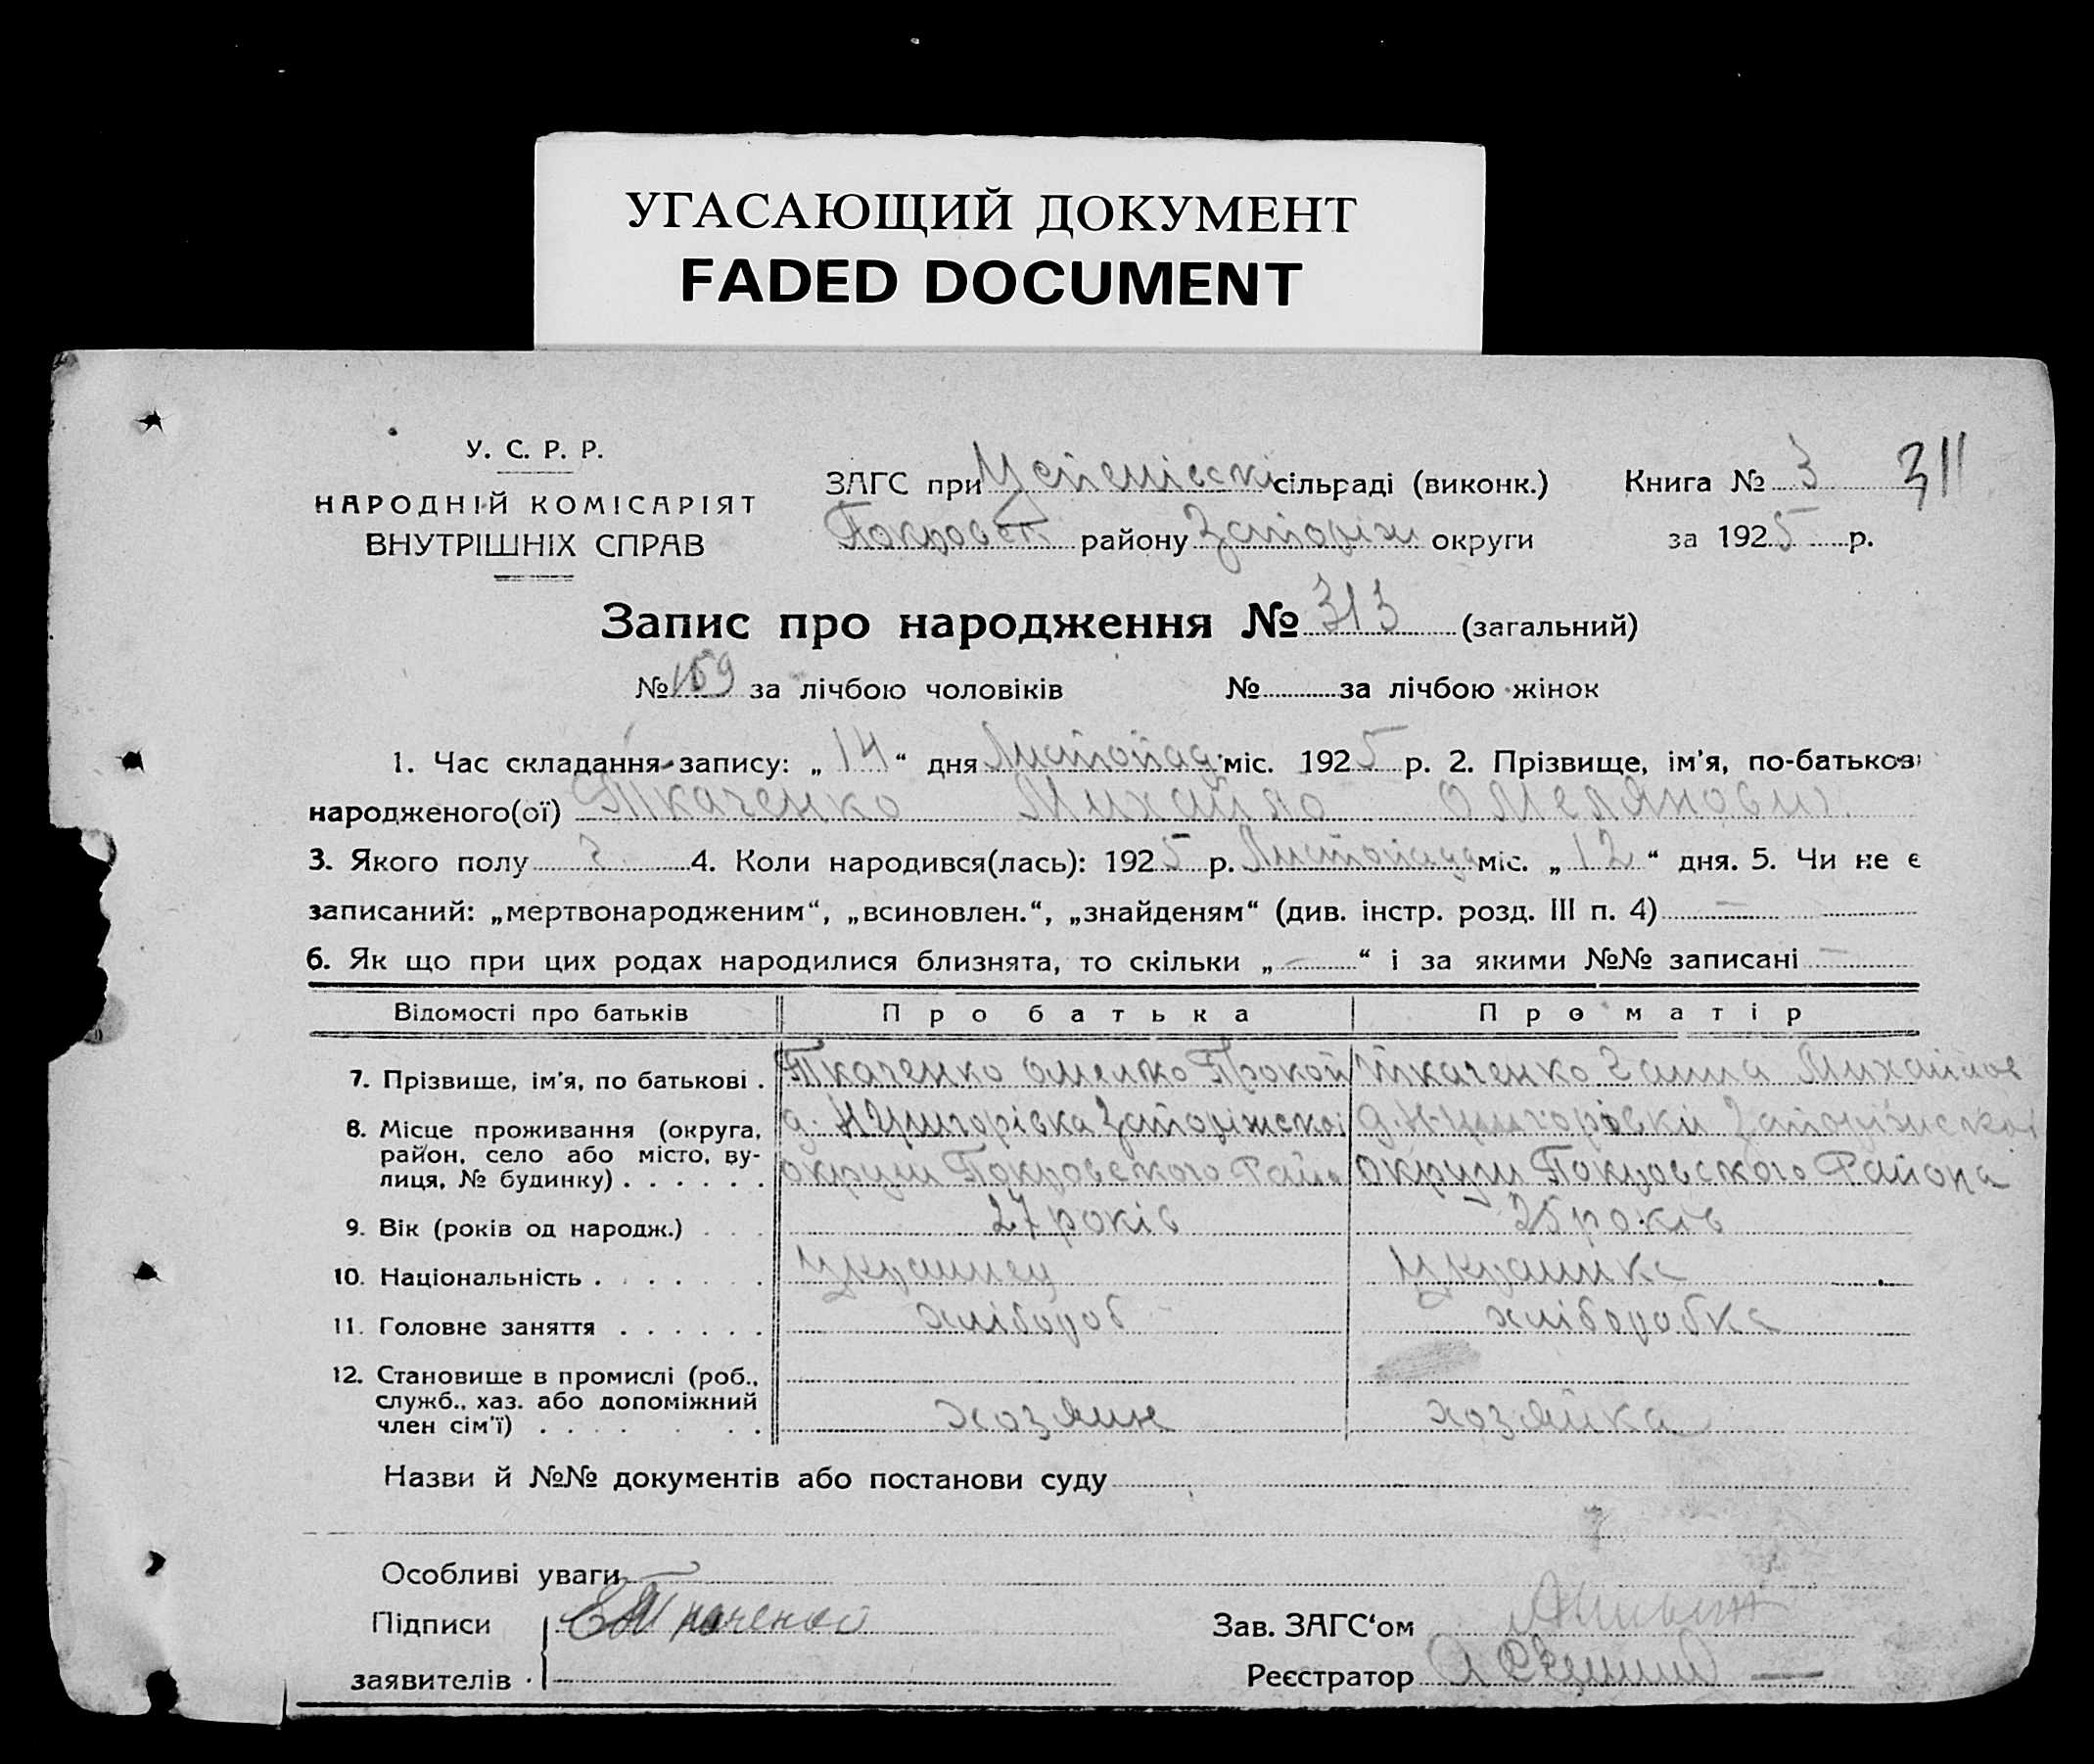 УГАСАЮЩИЙ ДОКУМЕНТ
FADED DOCUMENT
У. С. Р. Р.
НАРОДНІЙ КОМІСАРІЯТ
ВНУТРІШНІХ СПРАВ
ЗАГС при сільраді (виконк.)
Покровск району Запоріж округи
Книга № 3 311
за 1925 р.
Запис про народження № 313 (загальний)
№ 159 за лічбою чоловіків № за лічбою жінок
1. Час складання запису: „ 14 “ дня Листопад міс. 1925 р. 2. Прізвище, ім'я, по-батькові
народженого(ої) Ткаченко Михайло Омелянович
3. Якого полу ч 4. Коли народився(лась): 1925 р. Листопада міс. „ 12 “ дня. 5. Чи не є
записаний: „мертвонародженим“, „всиновлен.“, „знайденям“ (див. інстр. розд. III п. 4) —
6. Як що при цих родах народилися близнята, то скільки „ — “ і за якими №№ записані —
Відомості про батьків Про батька Про матір
7. Прізвище, ім'я, по батькові . Ткаченко Омелко Прокоп Ткаченко Ганна Михайлов
8. Місце проживання (округа, район, село або місто, вулиця, № будинку) . . . . . .
д. Н Григорівка Запоріжскоі д. Н-Григорівки Запоріжскоі
округи Покровского Райо округи Покровского Района
9. Вік (років од народж.) . . . 27 років 25 років
10. Національність . . . . . . . Украинец Украинка
11. Головне заняття . . . . . . хлібороб хлібооробка
12. Становище в промислі (роб., служб., хаз. або допоміжний член сім'ї) . . . . . . хозяин хозяйка
Назви й №№ документів або постанови суду
Особливі уваги
Підписи
заявителів
Зав. ЗАГС'ом
Реєстратор